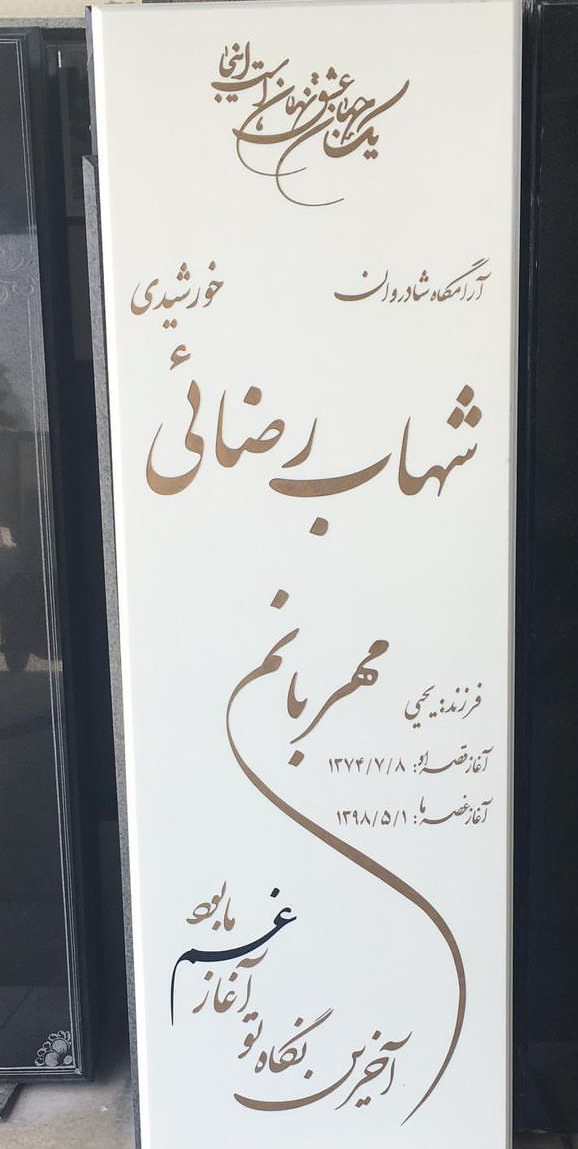 یک جهان عشق نهان است اینجا
آرامگاه شادروان
خورشیدی
شهاب رضائی
مهربانم
فرزند: یحیی
آغاز قصه او: ۱۳۷۴/۷/۸
آغاز غصه ما: ۱۳۹۸/۵/۱
آخرین نگاه تو
آغاز
غم
ما بود